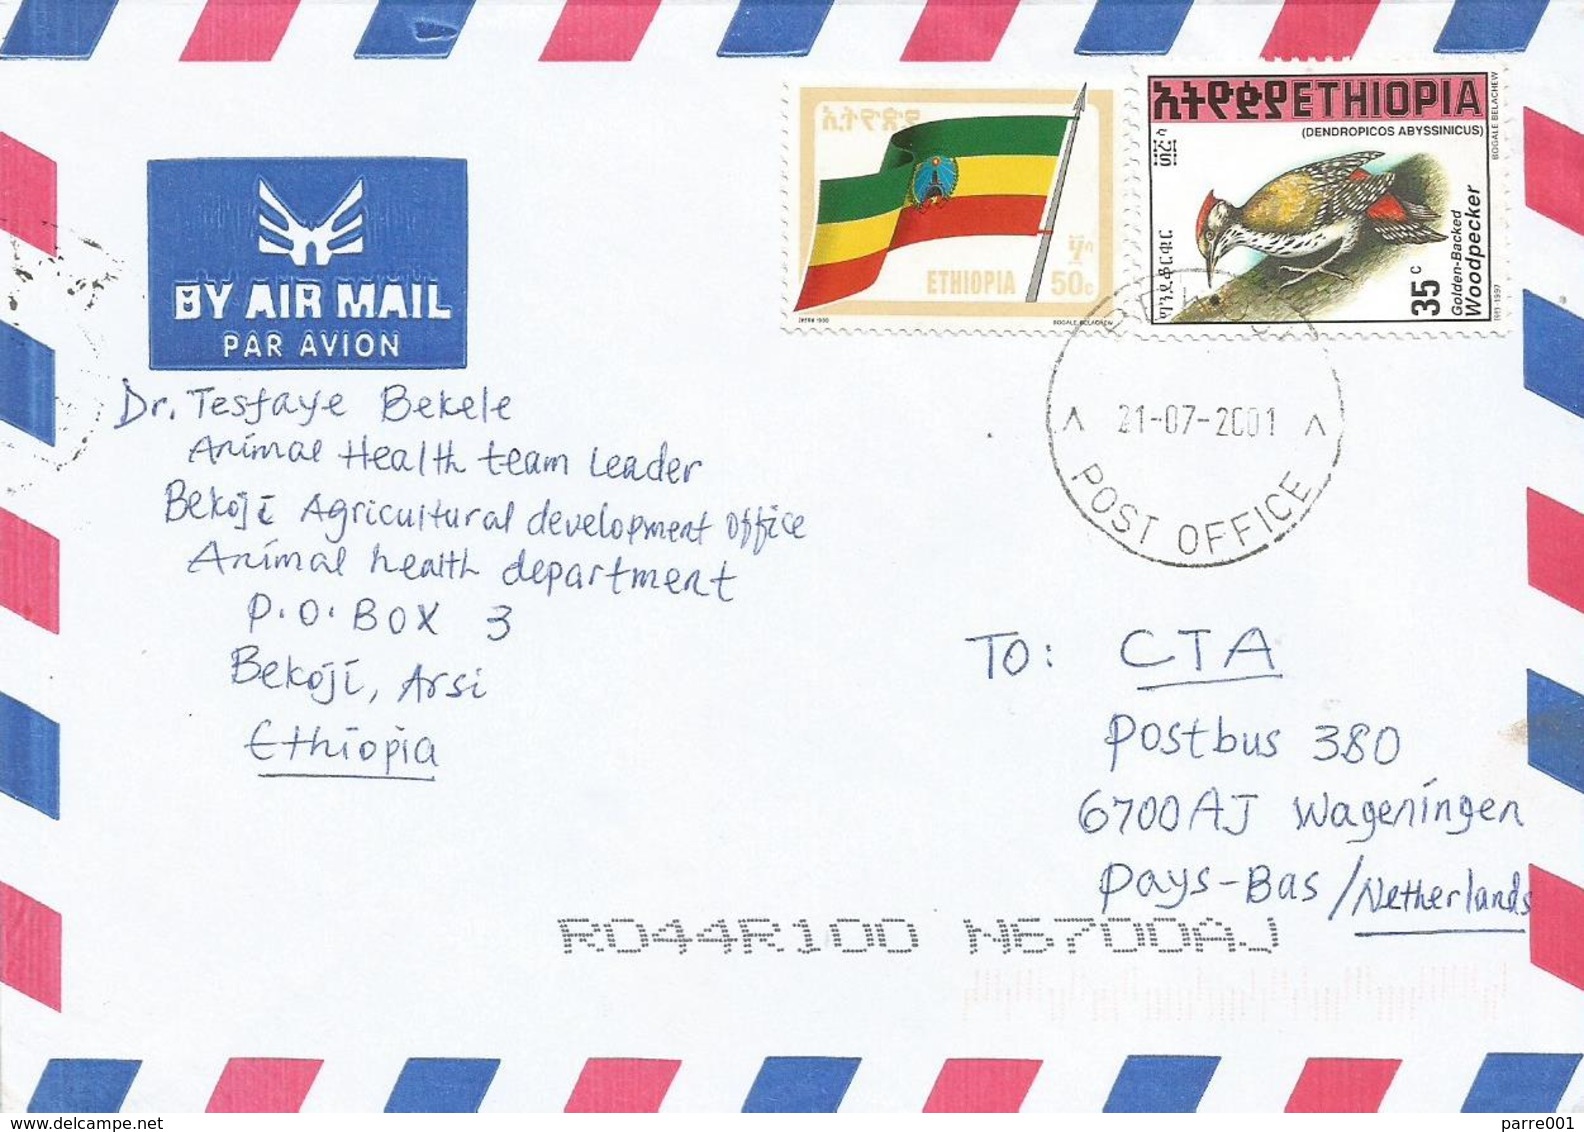 ኢትዮጵያ
ETHIOPIA
50c
BOGALE BELACHEW
ኢትዮጵያ ETHIOPIA
(DENDROPICOS ABYSSINICUS)
BOGALE BELACHEW
ግንደቆርቁር
35c
Golden-Backed
Woodpecker
1997
BY AIR MAIL
PAR AVION
21-07-2001
POST OFFICE
Dr. Tesfaye Bekele
Animal Health team Leader
Bekoji Agricultural development office
Animal health department
P.O.BOX 3
Bekoji, Arsi
Ethiopia
To: CTA
Postbus 380
6700AJ Wageningen
Pays-Bas/Netherlands
R044R100 N6700AJ
parre001